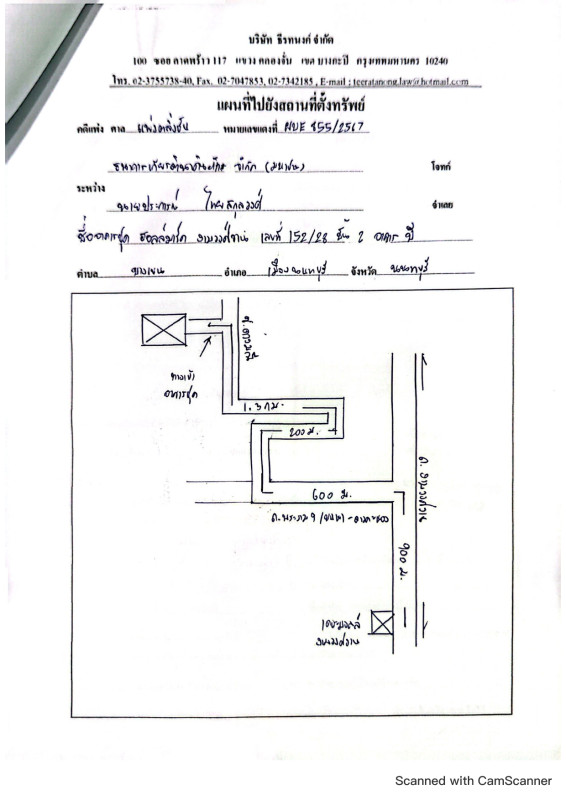 บริษัท ธีรทนงค์ จำกัด
100 ซอย ลาดพร้าว 117 แขวง คลองจั่น เขต บางกะปิ กรุงเทพมหานคร 10240
โทร. 02-3755738-40, Fax. 02-7047853, 02-7342185 , E-mail ; teeratanong.law@hotmail.com
แผนที่ไปยังสถานที่ตั้งทรัพย์
คดีแพ่ง ศาล แพ่งตลิ่งชัน หมายเลขแดงที่ ผบE 455/2567
ธนาคาร จำกัด (มหาชน) โจทก์
ระหว่าง
จำเลย
ชื่ออาคารชุด งามวงศ์วาน เลขที่ 152/28 ชั้น 2 อาคาร บี
ตำบล บางเขน อำเภอ เมืองนนทบุรี จังหวัด นนทบุรี
ทางเข้า
อาคารชุด
1.3 กม.
200 ม.
600 ม.
ถ. งามวงศ์วาน
900 ม.
เดอะมอลล์
งามวงศ์วาน
Scanned with CamScanner